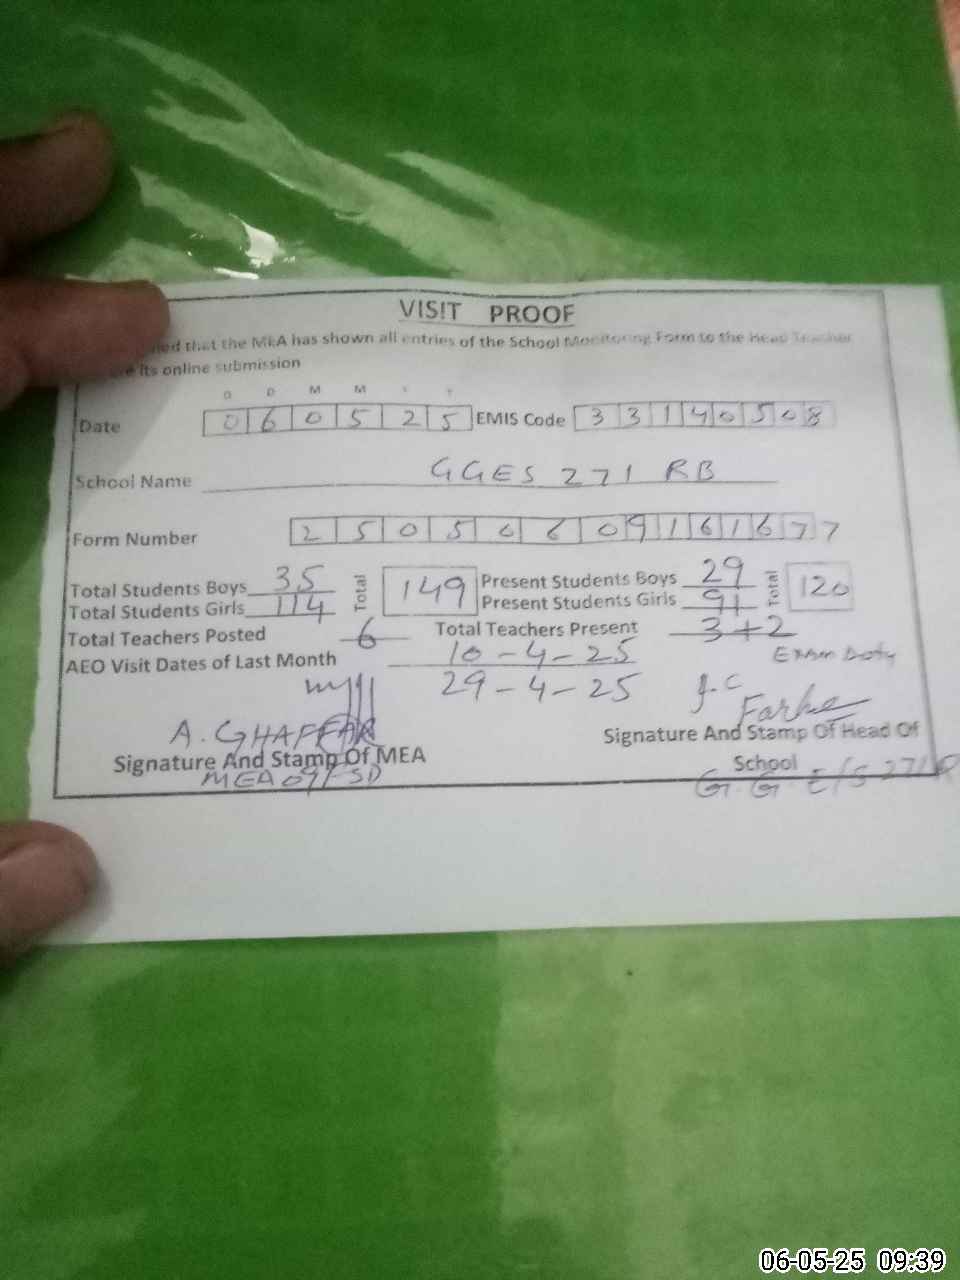 VISIT PROOF
that the MEA has shown all entries of the School Monitoring Form to the Head Teacher
its online submission
D D M M Y Y
Date 0 6 0 5 2 5 EMIS Code 3 3 1 4 0 5 0 8
School Name GGES 271 RB
Form Number 2 5 0 5 0 6 0 9 1 6 1 6 7 7
Total Students Boys 35 Total 149 Present Students Boys 29 Total 120
Total Students Girls 114 Present Students Girls 91
Total Teachers Posted 6 Total Teachers Present 3+2
AEO Visit Dates of Last Month 10-4-25 Exam Duty
29-4-25
A. GHAFFAR
Signature And Stamp Of MEA Signature And Stamp Of Head Of
School
MEA 09 FSD G.G.E/S 271 R
06-05-25 09:39